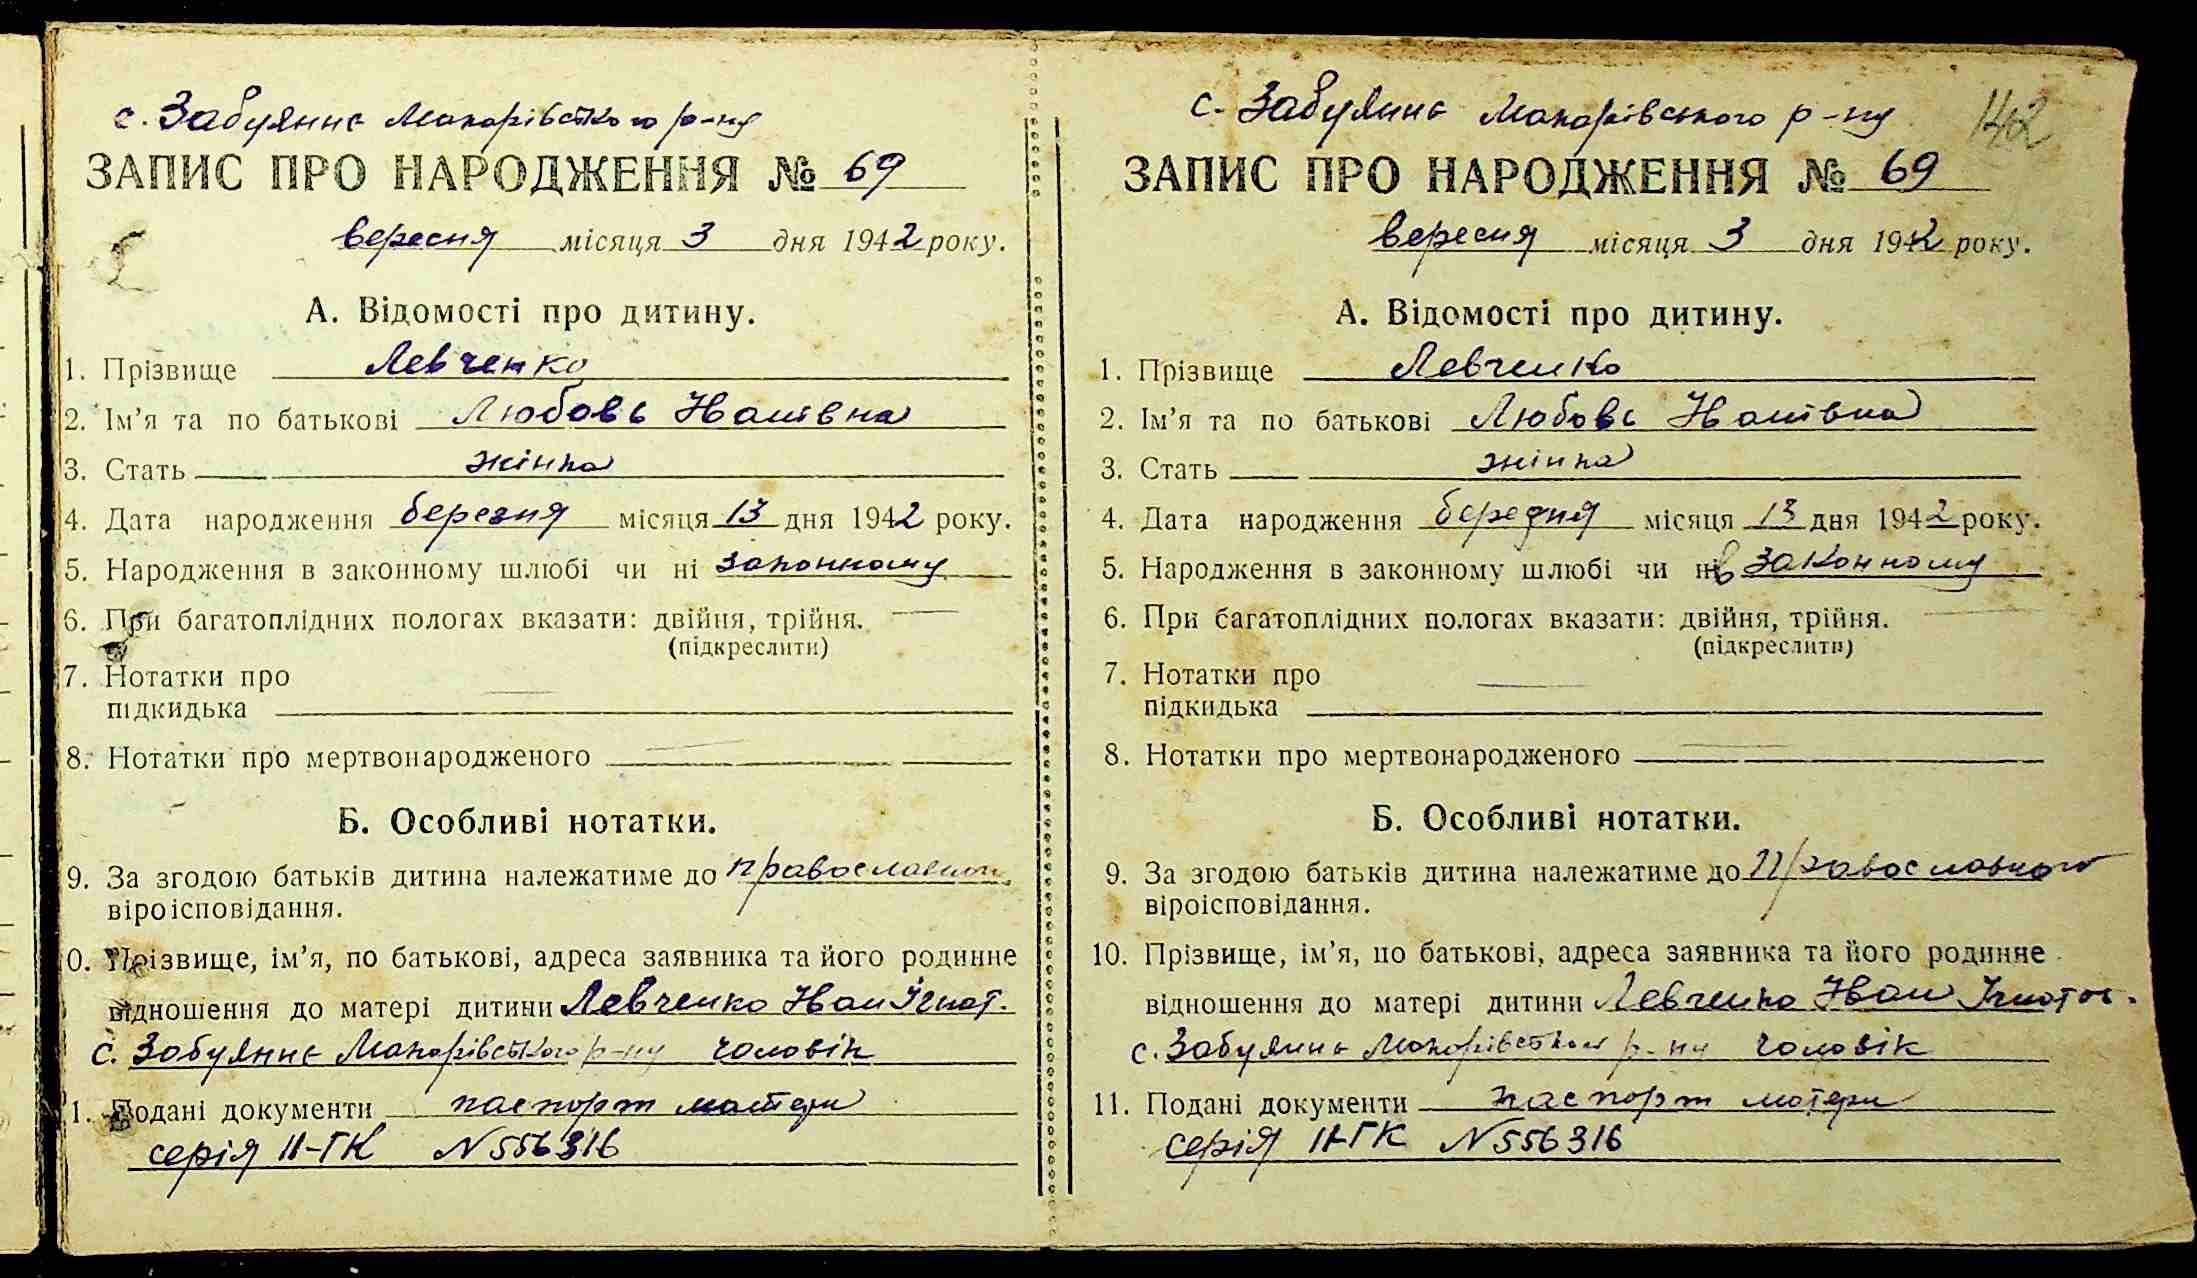 с. Забуянне Макарівского р-ну
ЗАПИС ПРО НАРОДЖЕННЯ № 69
вересня місяця 3 дня 1942 року.
А. Відомості про дитину.
1. Прізвище Левченко
2. Ім'я та по батькові Любовь Іванівна
3. Стать жінка
4. Дата народження березня місяця 13 дня 1942 року.
5. Народження в законному шлюбі чи ні законному
6. При багатоплідних пологах вказати: двійня, трійня.
(підкреслити)
7. Нотатки про
підкидька
8. Нотатки про мертвонародженого
Б. Особливі нотатки.
9. За згодою батьків дитина належатиме до
віроісповідання.
0. Прізвище, ім'я, по батькові, адреса заявника та його родинне
відношення до матері дитини Левченко Іван Ігнат.
с. Забуянне Макарівского р-ну чоловік
1. Подані документи паспорт матери
серія II-ГК N 556316
с. Забуянне Макарівського р-ну 142
ЗАПИС ПРО НАРОДЖЕННЯ № 69
вересня місяця 3 дня 1942 року.
А. Відомості про дитину.
1. Прізвище Левченко
2. Ім'я та по батькові Любовь Іванівна
3. Стать жінка
4. Дата народження березня місяця 13 дня 1942 року.
5. Народження в законному шлюбі чи в законному
6. При багатоплідних пологах вказати: двійня, трійня.
(підкреслити)
7. Нотатки про
підкидька
8. Нотатки про мертвонародженого
Б. Особливі нотатки.
9. За згодою батьків дитина належатиме до Православного
віроісповідання.
10. Прізвище, ім'я, по батькові, адреса заявника та його родинне
відношення до матері дитини Левченко Іван Ігнатов.
с. Забуянне Макарівского р-ну чоловік
11. Подані документи паспорт матери
серія II-ГК N 556316